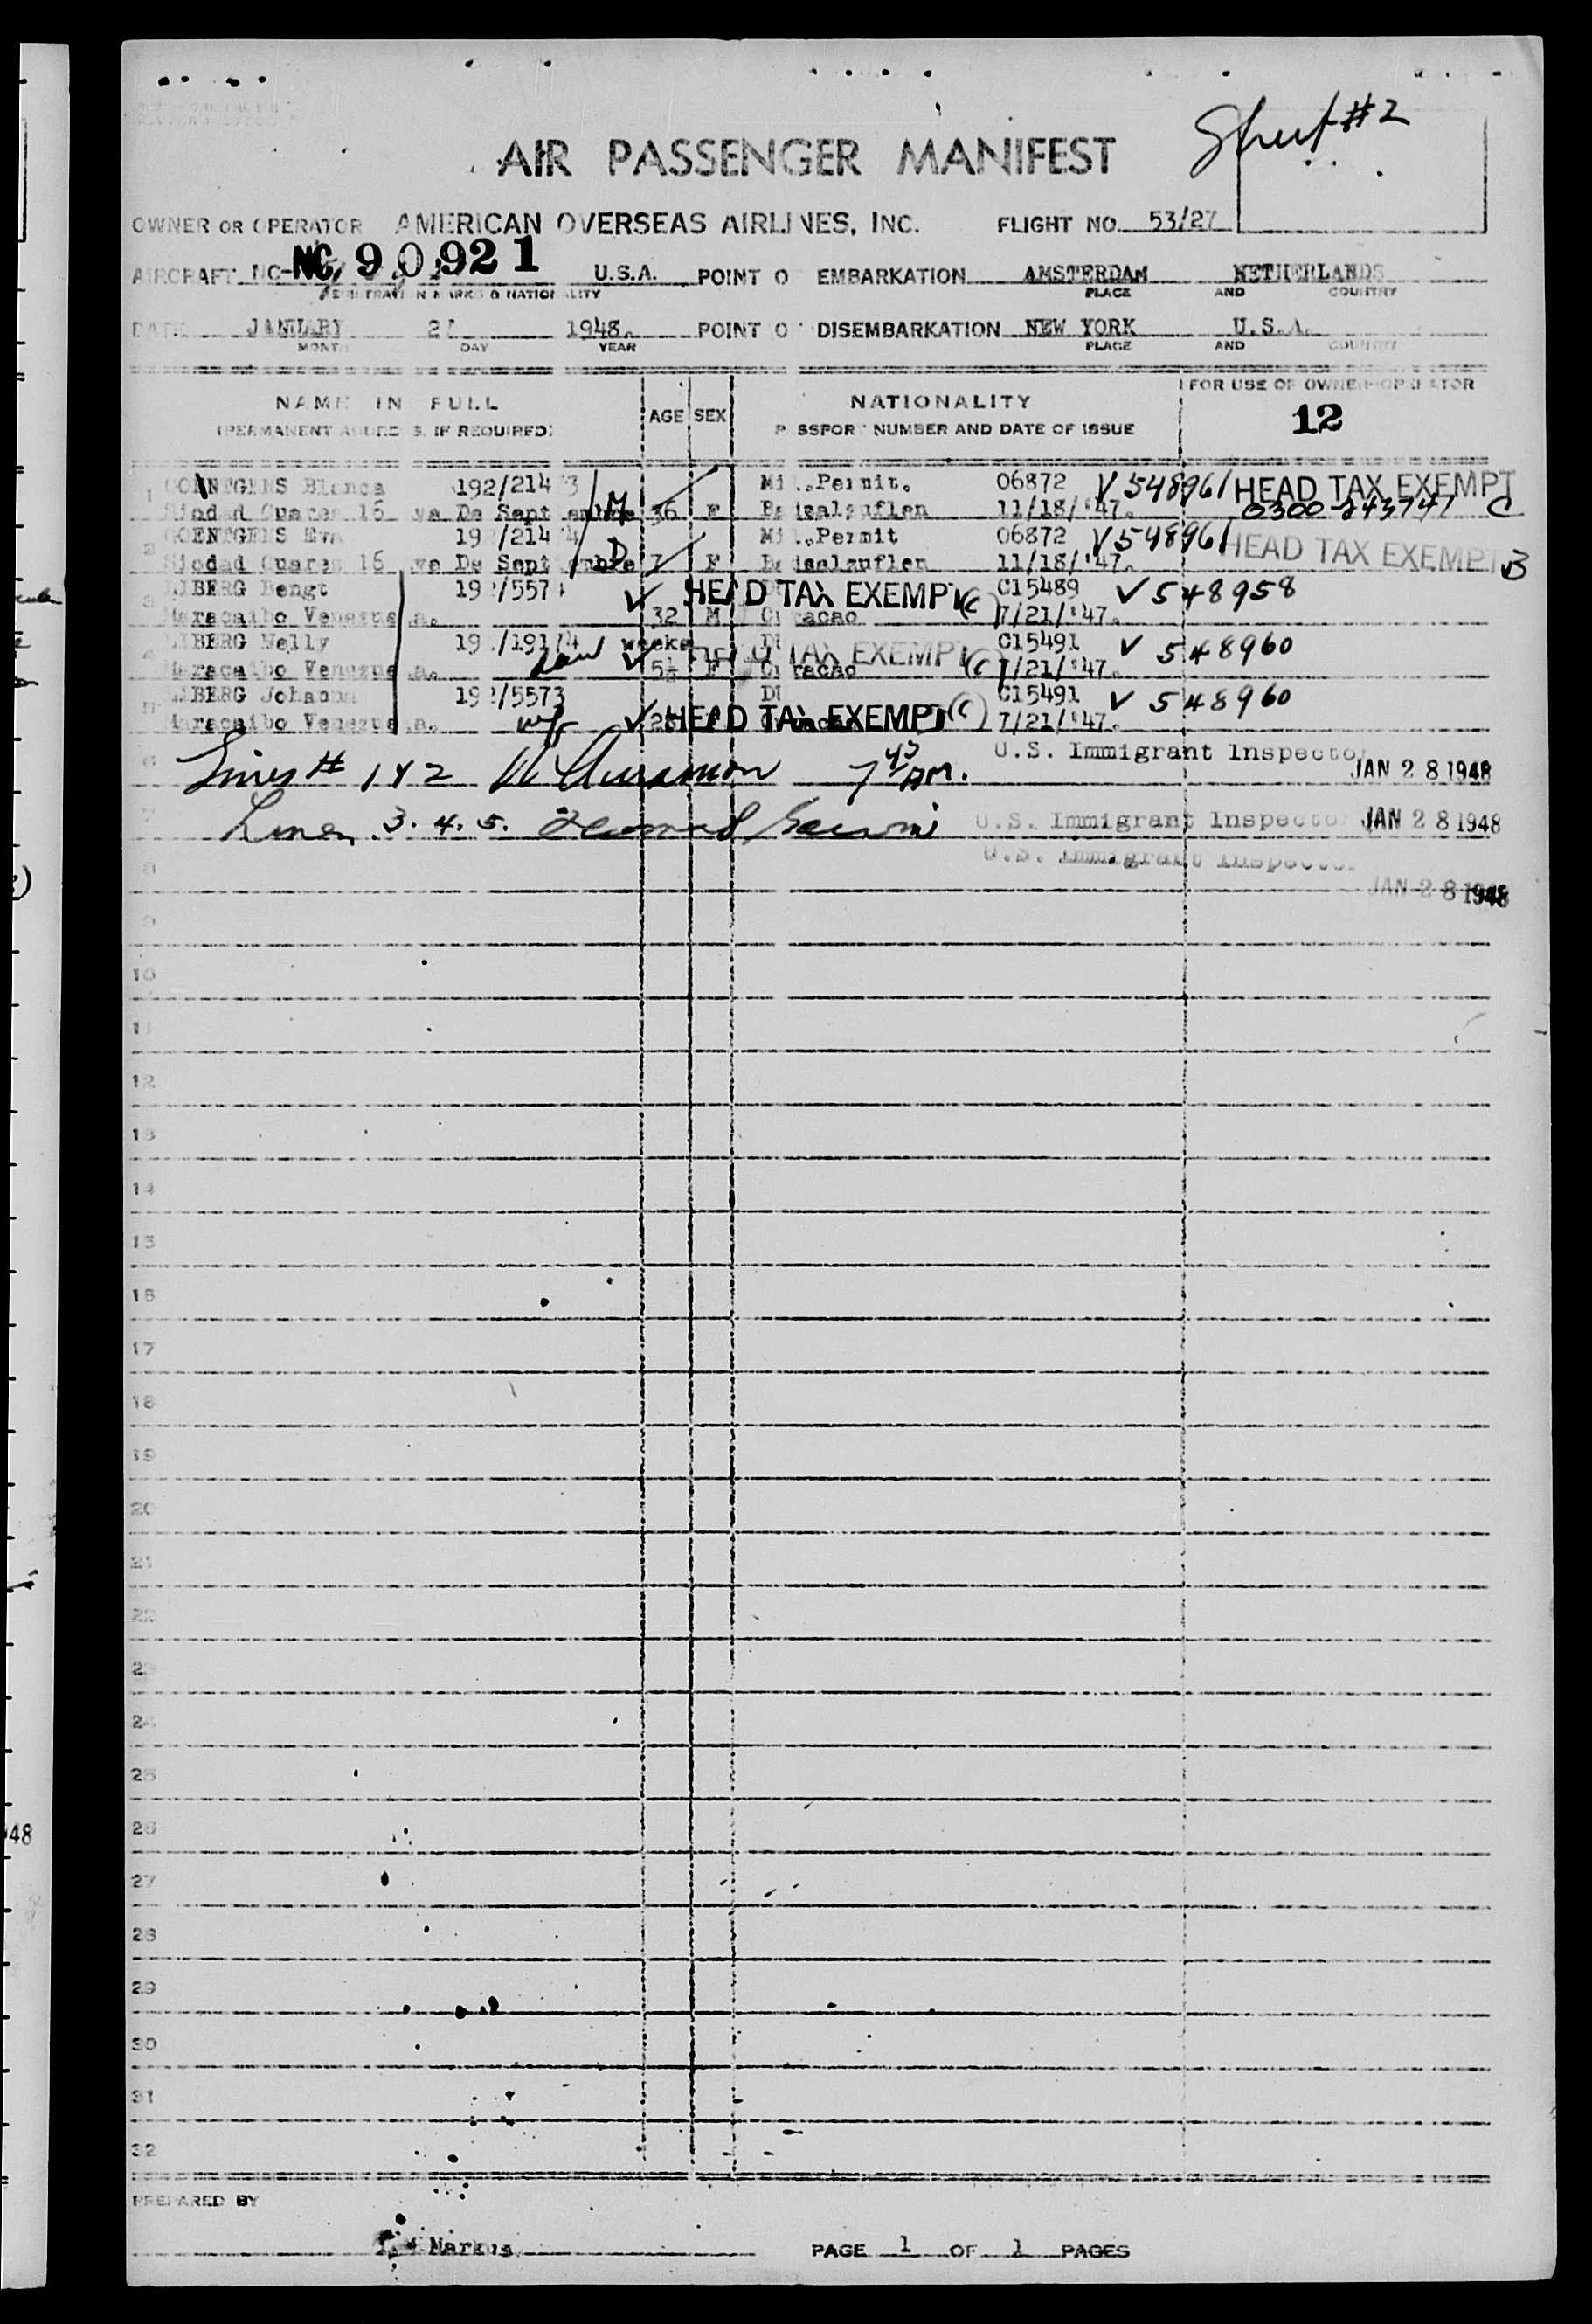 Sheet #2
AIR PASSENGER MANIFEST
OWNER OR OPERATOR AMERICAN OVERSEAS AIRLINES, INC. FLIGHT NO. 53/27
AIRCRAFT NC- NC 90921 U.S.A. POINT O EMBARKATION AMSTERDAM NETHERLANDS
PLACE AND COUNTRY
DATE JANUARY 1948. POINT O DISEMBARKATION NEW YORK U.S.A.
MONTH DAY YEAR PLACE AND COUNTRY
NAME IN FULL AGE SEX NATIONALITY FOR USE OF OWNER OPERATOR
(PERMANENT ADDRESS, IF REQUIRED) PASSPORT NUMBER AND DATE OF ISSUE 12
1 GOENTGENS Blanca 192/214 3 M Mil.Permit. 06872 V548961 HEAD TAX EXEMPT
Siudad Quares 16 va De Sept embre 36 F 11/18/'47. 0300-243747 C
2 GOENTGENS Eva 19 /214 4 D Mil.Permit 06872 V548961 HEAD TAX EXEMPT B
Siodad Quares 16 va De Sept embre 7 F 11/18/'47.
3 LJBERG Bengt 19 /557 HEAD TAX EXEMPT (C) C15489 V 548958
Maracaibo Venezue a. 32 M Curacao 7/21/'47.
4 LJBERG Nelly 19 /191/4 weeks HEAD TAX EXEMPT (C) C15491 V 548960
Maracaibo Venezue a. 5½ F Curacao 7/21/'47.
5 LJBERG Johanna 19 /5573 C15491 V 548960
Maracaibo Venezue a. wf HEAD TAX EXEMPT (C) 7/21/'47.
6 Lines # 1 & 2 7 45 AM. U.S. Immigrant Inspector JAN 28 1948
7 Lines 3. 4. 5. U.S. Immigrant Inspector JAN 28 1948
8 U.S. Immigrant Inspector
JAN 28 1948
9
10
11
12
13
14
15
16
17
18
19
20
21
22
23
24
25
26
27
28
29
30
31
32
PREPARED BY
Markus PAGE 1 OF 1 PAGES
48